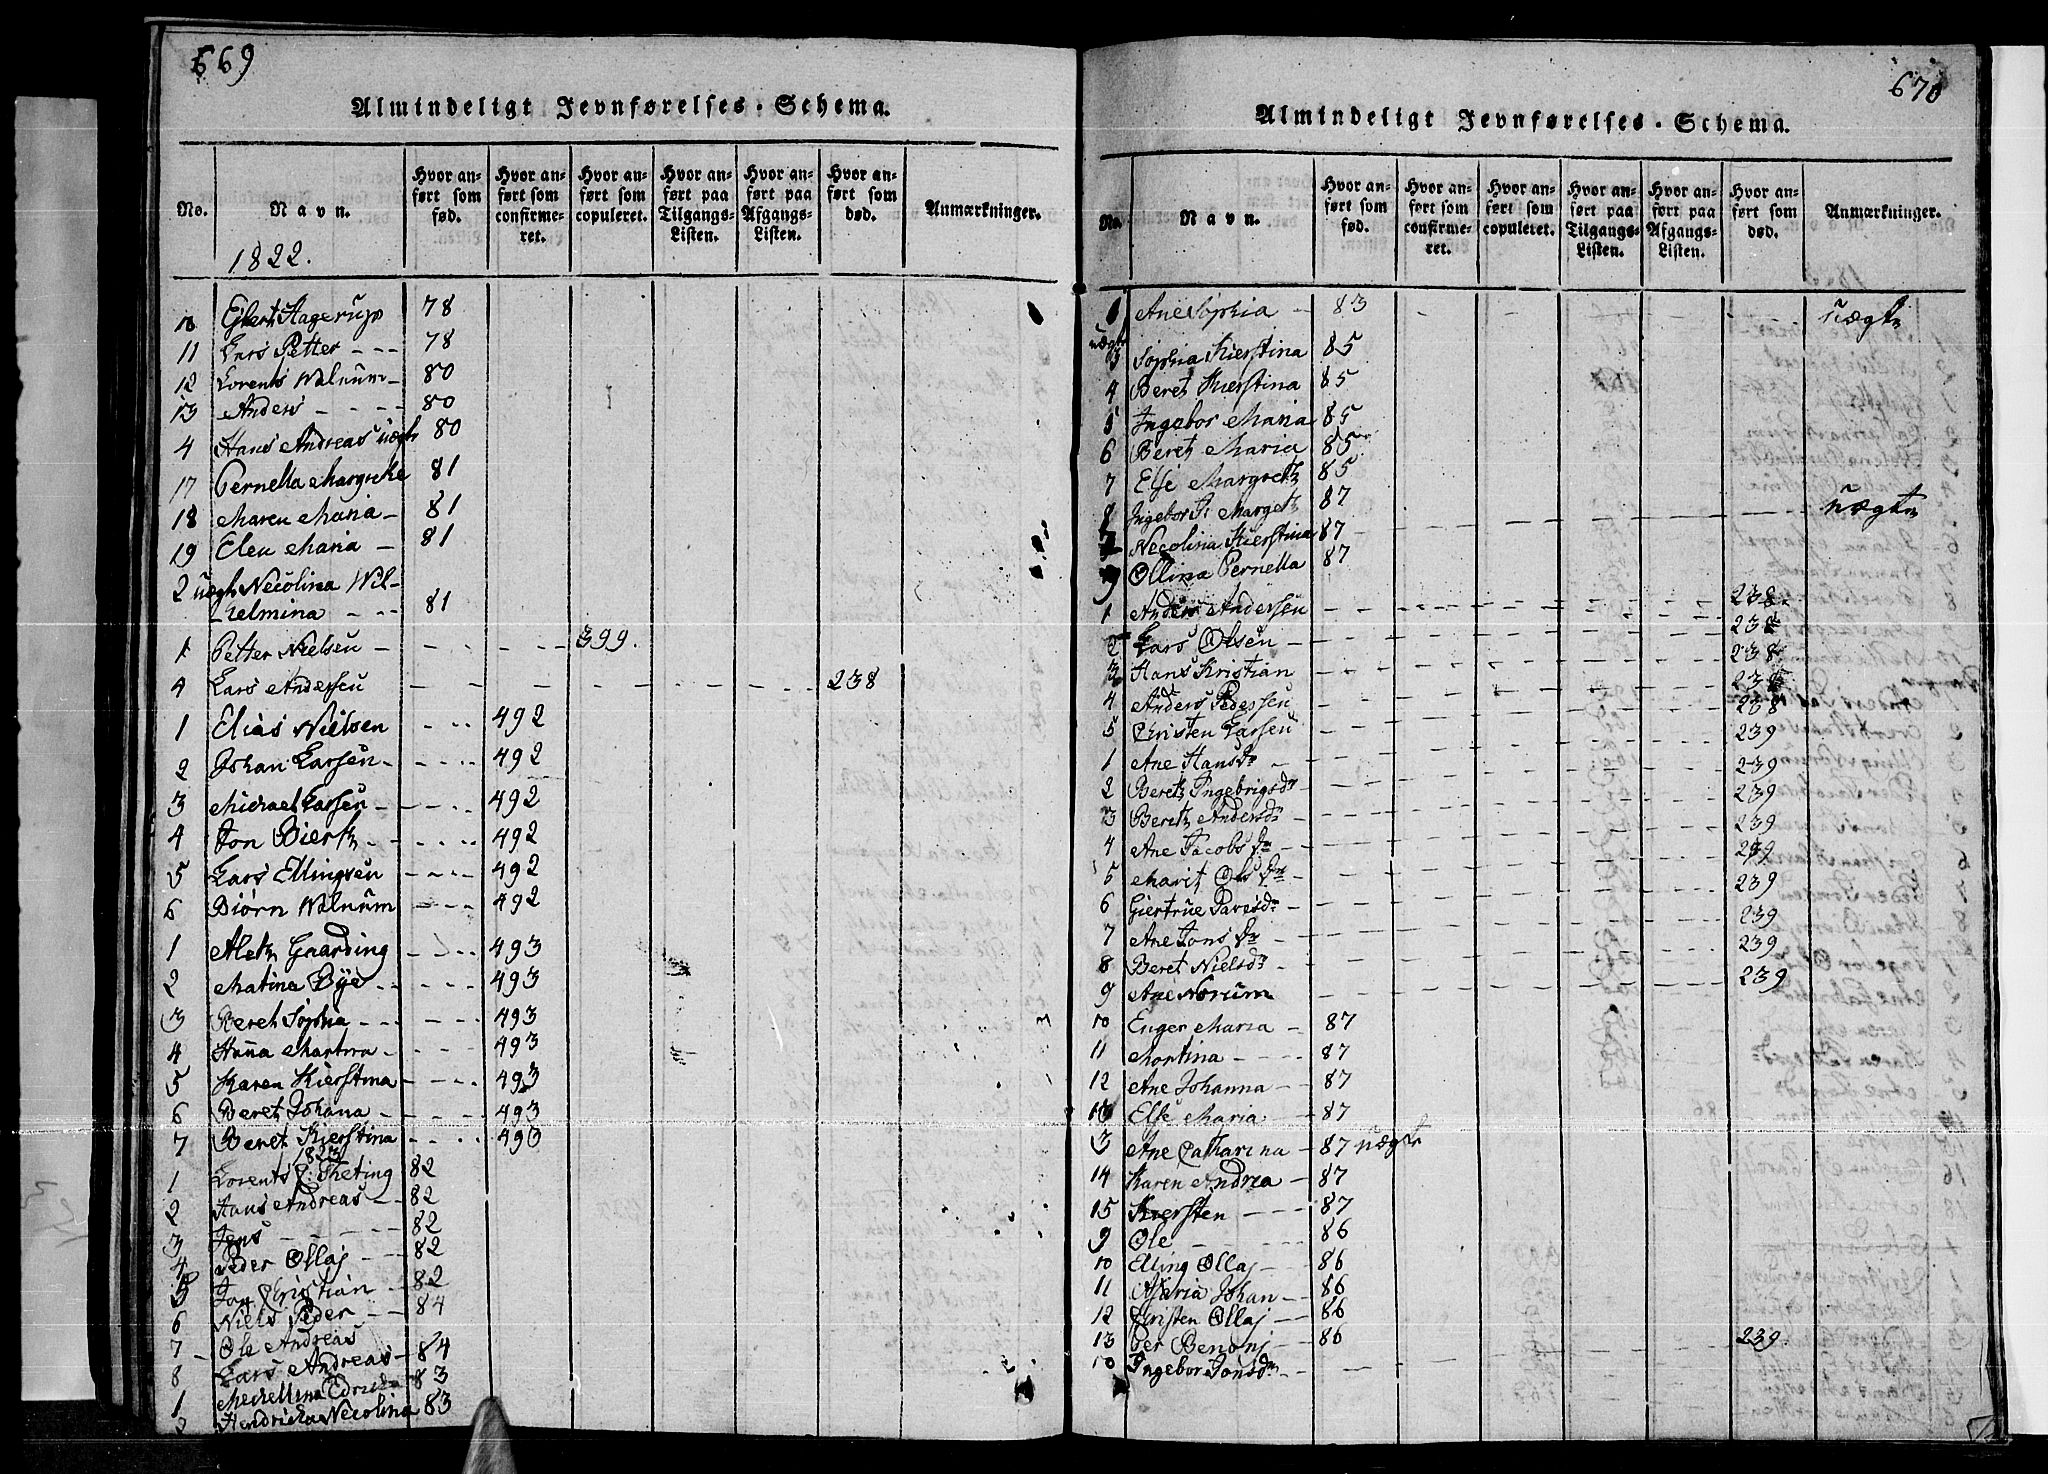 669
Almindeligt Jevnførelses-Schema.
No.
Navn.
Hvor anført som fød.
Hvor anført som confirmeret.
Hvor anført som copuleret.
Hvor anført paa Tilgangs-Listen.
Hvor anført paa Afgangs-Listen.
Hvor anført som død.
Anmærkninger.
1822.
10 Ejlert Hagerup 78
11 Lars Petter - - - 78
12 Lorents Walnum - 80
13 Anders - - - - 80
4 Hans Andreas uægte 80
17 Pernella Margrethe 81
18 Maren Maria - 81
19 Elen Maria - 81
2 uægte Necolina Wil-
helmina - - - 81
1 Petter Nielsen - - - - - 399.
4 Lars Anderssen - - - - - - 238
1 Elias Nielsen - - - 492
2 Johan Larsen - - - - 492
3 Michael Larsen - - - - 492
4 Jon Biertz - - - - 492
5 Lars Ellingsen - - - - 492
6 Biørn Walnum - - - 492
1 Aletz Gaarding - - - 493
2 Matina Bye - - - - 493
3 Beret Sophia - - - - 493
4 Hanna Martina - - - - 493
5 Karen Kierstina - - - - 493
6 Beretz Johana - - - - 493
7 Beret Kierstina - - - - 493
1823
1 Lorents C: Theting 82
2 Hans Andreas - - 82
3 Jens - - - - 82
4 Peder Ollaj - - 82
5 Jon Christian - 82
6 Niels Peder - - 84
7 Ole Andreas
8 Lars Andreas - 84
1 Mechellina 83
2 Hendricha Necolina 83
670
Almindeligt Jevnførelses-Schema.
No.
Navn.
Hvor anført som fød.
Hvor anført som confirmeret.
Hvor anført som copuleret.
Hvor anført paa Tilgangs-Listen.
Hvor anført paa Afgangs-Listen.
Hvor anført som død.
Anmærkninger.
1 Ane Sophia - - 83 - - - - - uægte
uægte
3 Sophia Kierstina 85
4 Beret Kierstina 85
5 Ingebor Maria 85
6 Beret Maria 85
7 Else Margretz 85
8 Ingebor Margetz 87
Necolina Kierstina 87 - - - - - - uægte
9 Ollina Pernella 87
1 Anders Anderssen - - - - - - 238
2 Lars Olsen - - - - - - 238
3 Hans Kristian - - - - - - 238
4 Anders Pederssen - - - - - - 238
5 Christen Larsen - - - - - - 238
1 Ane Hansdr - - - - - - 239
2 Beretz Ingebrigsdr - - - - - - 239
3 Beretz Andersdr - - - - - - 239
4 Ane Jacobsdr - - - - - - 239
5 Marit Olsdr - - - - - - 239
6 Giertrue Paresdr - - - - - - 239
7 Ane Jonsdr - - - - - - 239
8 Beret Nielsdr - - - - - - 239
9 Ane Norum - - - - - - 239
10 Enger Maria - 87
11 Mortina - - - - 87
12 Ane Johanna - 87
13 Else Maria - - 87
3 Ane Catharina - 87 uægte
14 Karen Andrea - 87
15 Kiersten - - - - 87
9 Ole - - - - 86
10 Elling Ollaj - - - 86
11 Johan - - 86
12 Christen Ollaj - - 86
13 Per Benonj - - 86
10 Ingebor Jonsdr - - - 239.